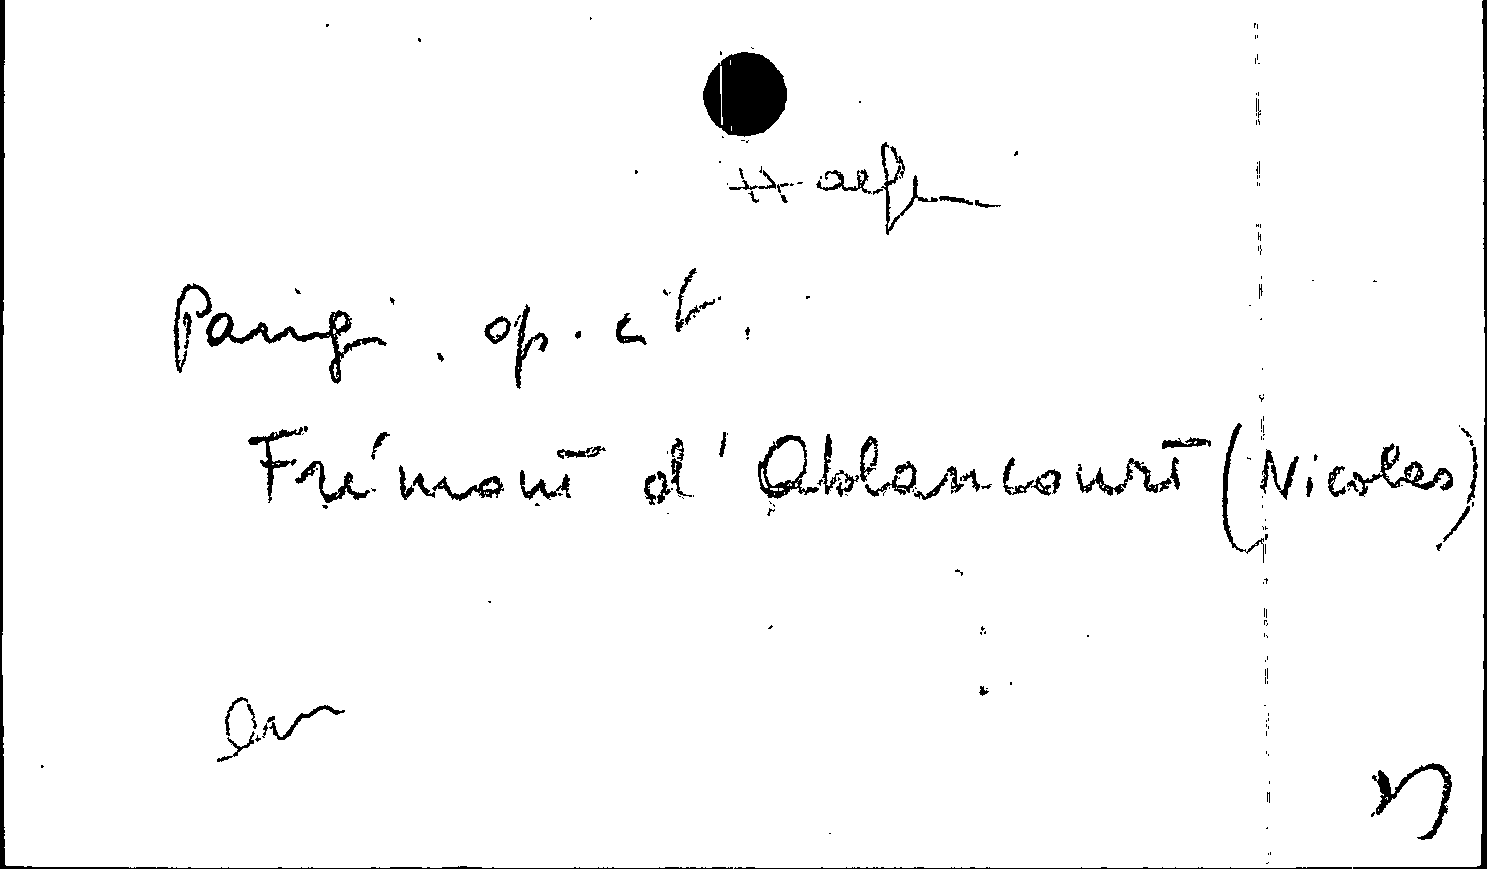 Parigi. op. cit.
Frémont d'Ablancourt (Nicolas)